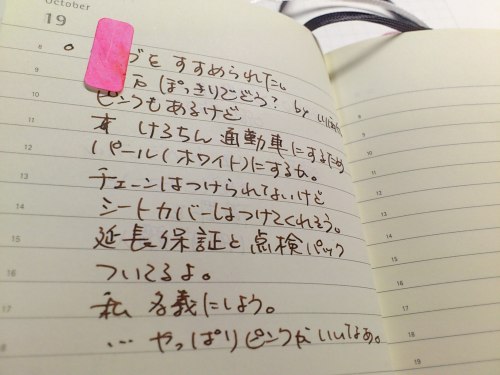 October
19
ブをすすめられたい
万ぽっきりでどう? by
ピンクもあるけど
けろちん通勤車にするため
パール(ホワイト)にするね。
チェーンはつけられてないけど
シートカバーはつけてくれそう。
延長保証と点検パック
ついてるよ。
私名義にしよう。
…やっぱりピンクがいいなぁ。
8
9
10
11
12
13
14
15
16
17